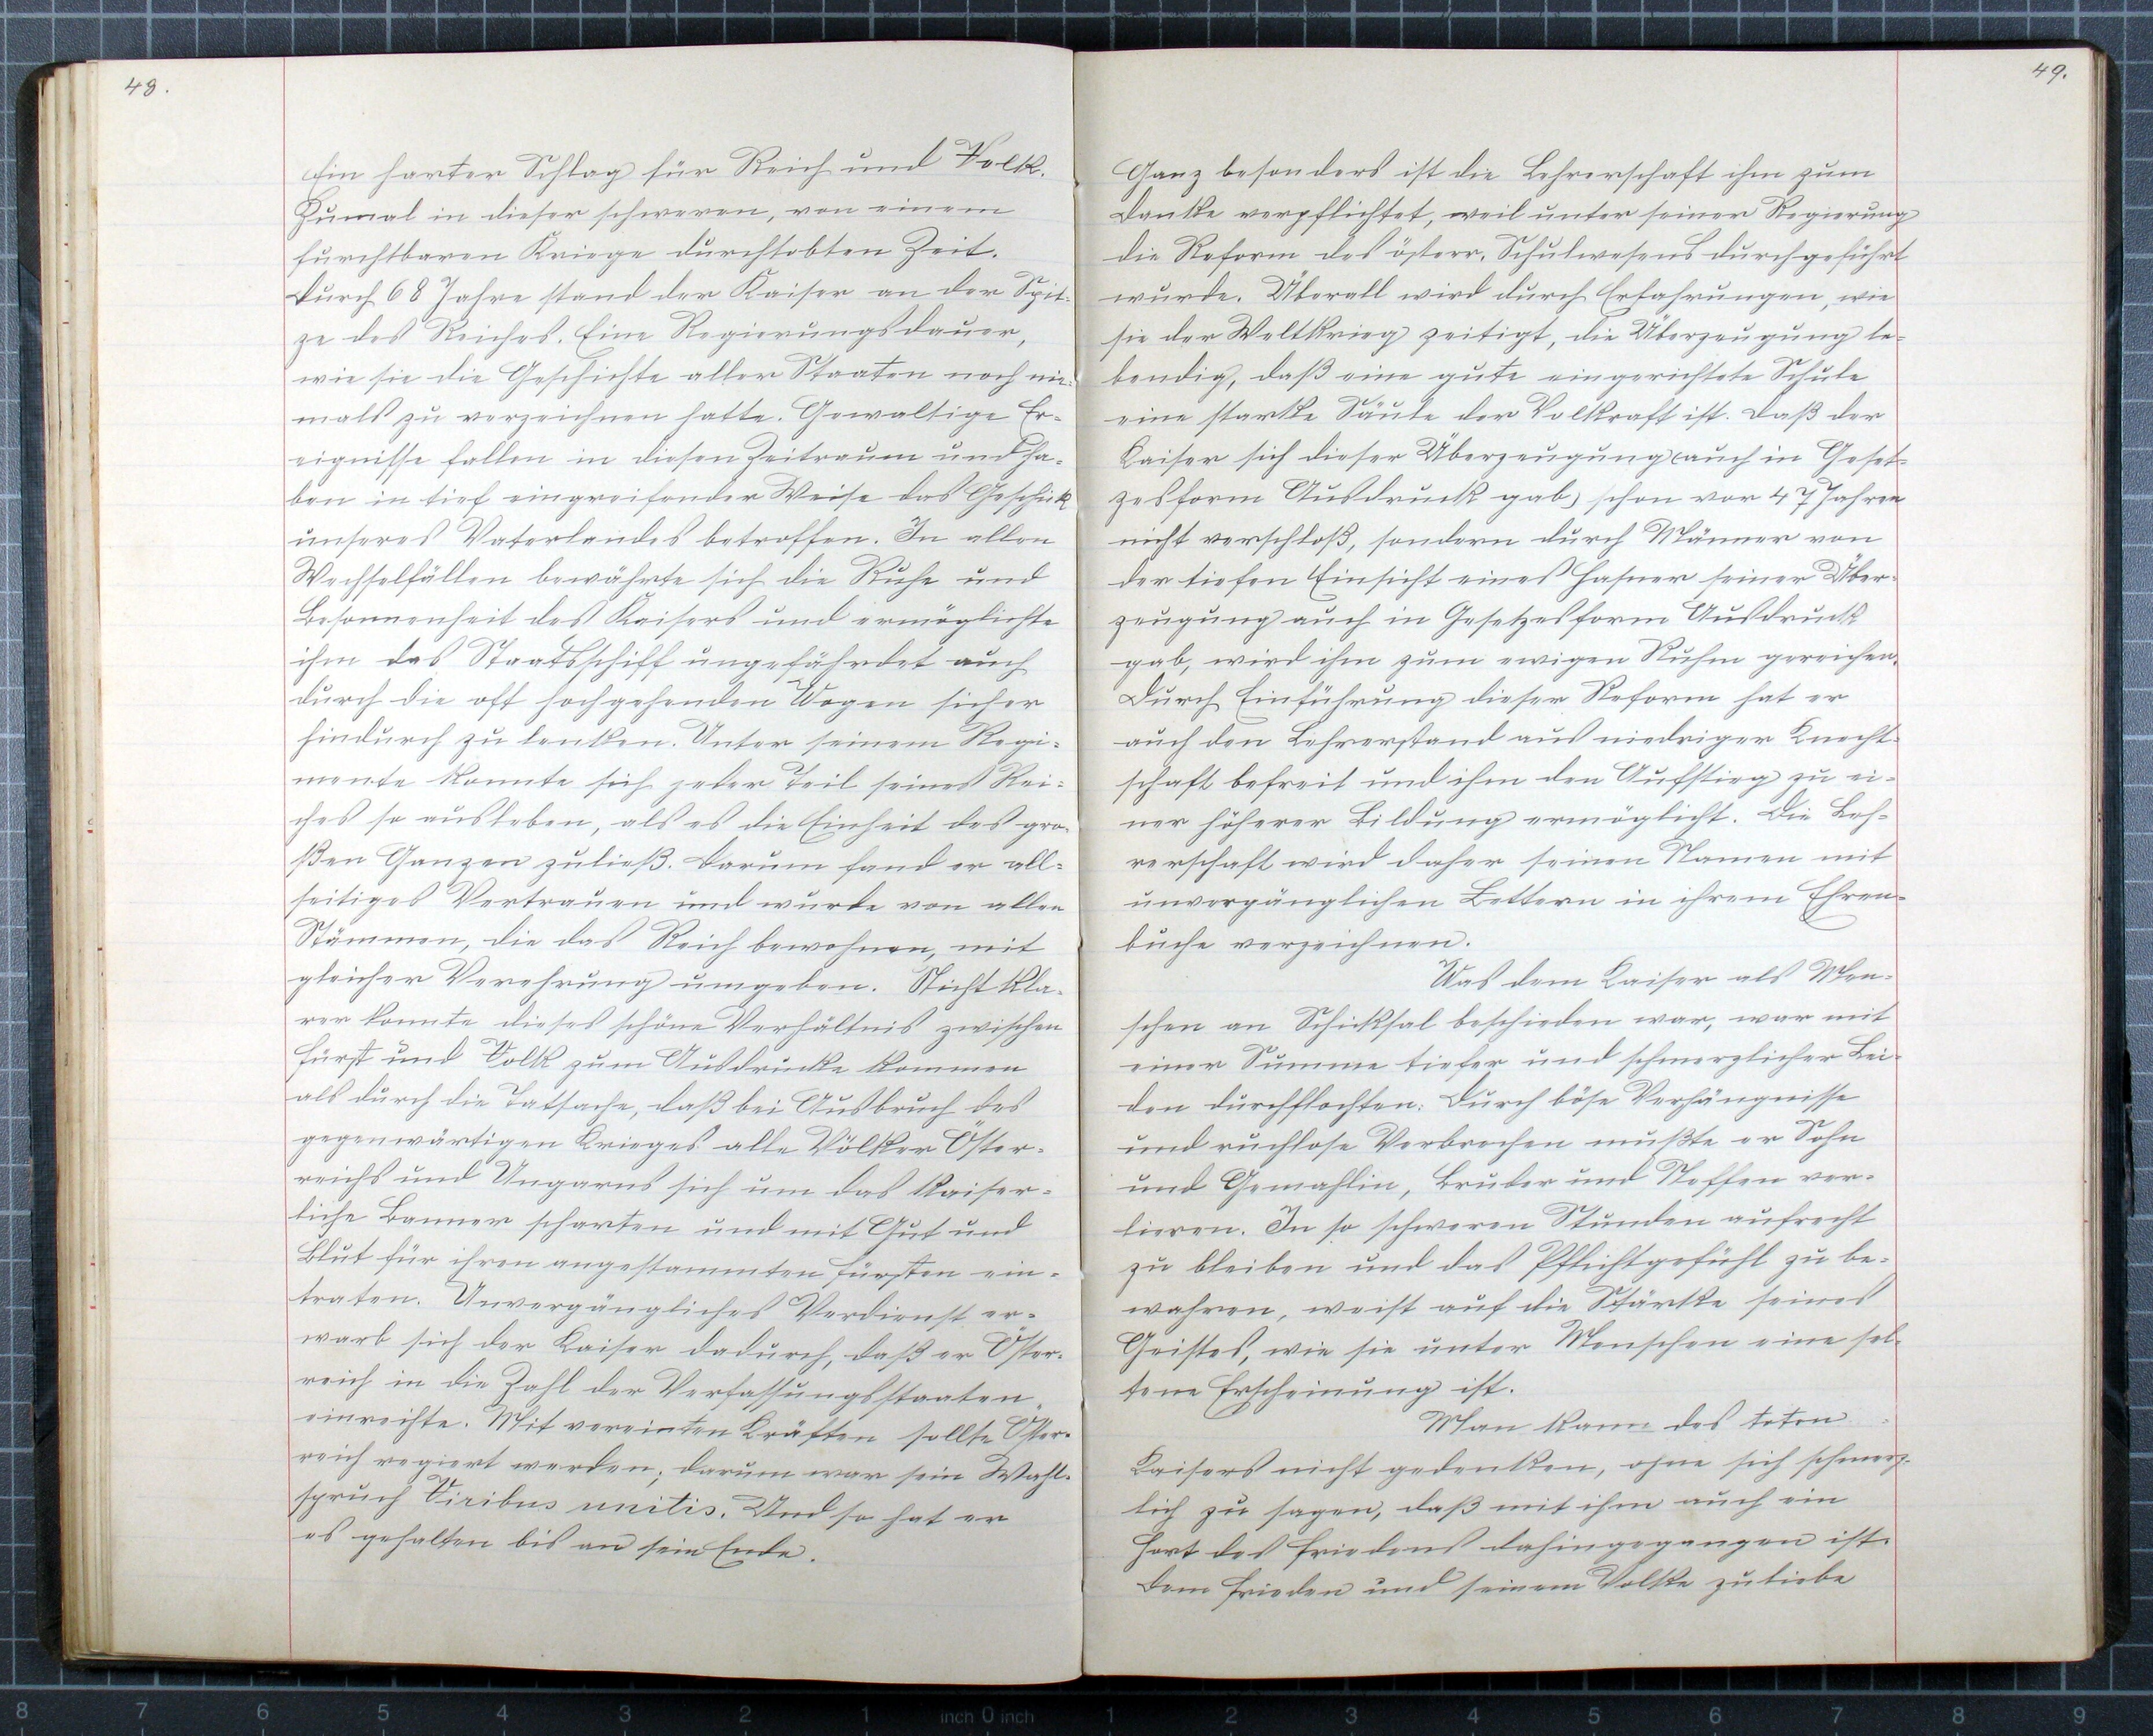 48.
Ein harter Schlag für Reich und Volk.
Zumal in dieser schweren, von einem
furchtbaren Kriege durchtobten Zeit.
Durch 68 Jahre stand der Kaiser an der Spit-
ze des Reiches. Eine Regierungsdauer,
wie sie die Geschichte aller Staaten noch nie-
mals zu verzeichnen hatte. Gewaltige Er-
eignisse fallen in diesen Zeitraum und ha-
ben in tief eingreifender Weise das Geschick
unseres Vaterlandes betroffen. In allen
Wechselfällen bewährte sich die Ruhe und
Besonnenheit des Kaisers und ermöglichte
ihm das Staatsschiff ungefährdet auch
durch die oft hochgehenden Wogen sicher
hindurch zu lenken. Unter seinem Regi-
mente konnte sich jeder Teil seines Rei-
ches so ausleben, als es die Einheit des gro-
ßen Ganzen zuließ. Darum fand er all-
seitiges Vertrauen und wurde von allen
Stämmen, die das Reich bewohnen, mit
gleicher Verehrung umgeben. Nicht kla-
rer konnte dieses schöne Verhältnis zwischen
Fürst und Volk zum Ausdrucke kommen
als durch die Tatsache, daß bei Ausbruch des
gegenwärtigen Krieges alle Völker Öster-
reichs und Ungarns sich um das kaiser-
liche Banner scharten und mit Gut und
Blut für ihren angestammten Fürsten ein-
traten. Unvergängliches Verdienst er-
warb sich der Kaiser dadurch, daß er Öster-
reich in die Zahl der Verfassungsstaaten
einreihte. Mit vereinten Kräften sollte Öster-
reich regiert werden; darum war sein Wahl-
spruch Viribus unitis. Und so hat er
es gehalten bis an sein Ende.
49.
Ganz besonders ist die Lehrerschaft ihm zum
Danke verpflichtet, weil unter seiner Regierung
die Reform des österr. Schulwesens durchgeführt
wurde. Überall wird durch Erfahrungen, wie
sie der Weltkrieg zeitigt, die Überzeugung le-
bendig, daß eine gute eingerichtete Schule
eine starke Säule der Volkraft ist. Daß der
Kaiser sich dieser Überzeugung (auch in Geset-
zesform Ausdruck gab) schon vor 47 Jahren
nicht verschloß, sondern durch Männer von
der tiefen Einsicht eines Hasner seiner Über-
zeugung auch in Gesetzesform Ausdruck
gab, wird ihm zum ewigen Ruhm gereichen.
Durch Einführung dieser Reform hat er
auch den Lehrerstand aus niedriger Knecht-
schaft befreit und ihm den Aufstieg zu ei-
ner höherer Bildung ermöglicht. Die Leh-
rerschaft wird daher seinen Namen mit
unvergänglichen Lettern in ihrem Ehren-
buche verzeichnen.
Was dem Kaiser als Men-
schen an Schicksal beschieden war, war mit
einer Summe tiefer und schmerzlicher Lei-
den durchflochten. Durch böse Verhängnisse
und ruchlose Verbrechen mußte er Sohn
und Gemahlin, Bruder und Neffen ver-
lieren. In so schweren Stunden aufrecht
zu bleiben und das Pflichtgefühl zu be-
wahren, weist auf die Stärke seines
Geistes, wie sie unter Menschen eine sel-
tene Erscheinung ist.
Man kann des toten
Kaisers nicht gedenken, ohne sich schmerz-
lich zu sagen, daß mit ihm auch ein
Hort des Friedens dahingegangen ist.
Dem Frieden und seinem Volke zuliebe
8 7 6 5 4 3 2 1 inch 0 inch 1 2 3 4 5 6 7 8 9